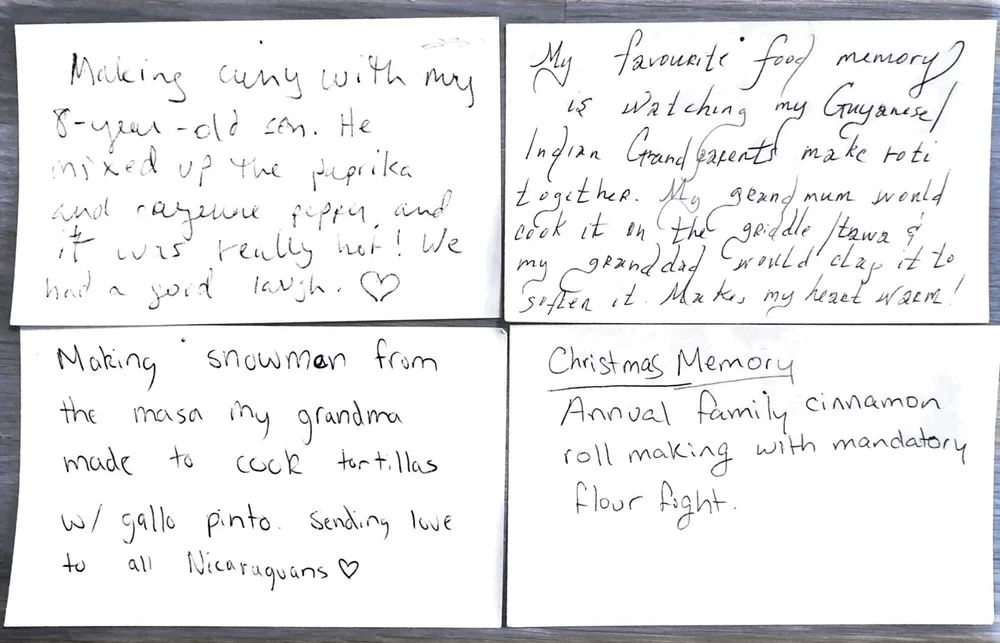 Making curry with my
8-year-old son. He
mixed up the paprika
and cayenne pepper, and
it was really hot! We
had a good laugh. ♡
My favourite food memory
is watching my Guyanese/
Indian Grandparents make roti
together. My grandmum would
cook it on the griddle/tawa &
my granddad would clap it to
soften it. Makes my heart warm!
Making snowman from
the masa my grandma
made to cook tortillas
w/ gallo pinto. Sending love
to all Nicaraguans ♡
Christmas Memory
Annual family cinnamon
roll making with mandatory
flour fight.